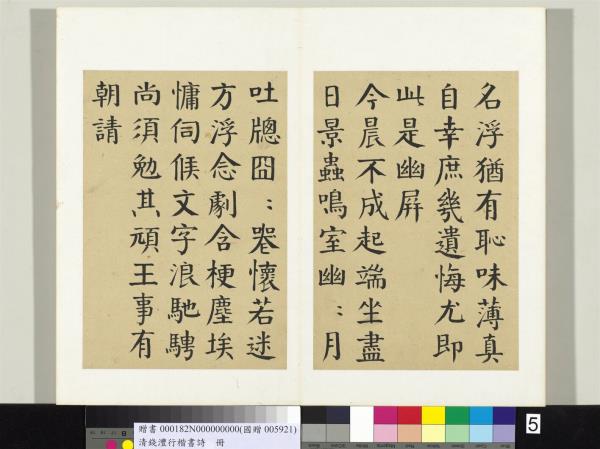 名浮猶有恥味薄真
自幸庶幾遺悔尤即
此是幽屏
今晨不成起端坐盡
日景蟲鳴室幽〻月
吐牕囧〻卷懷若迷
方浮念劇含梗塵埃
慵伺候文字浪馳騁
尚須勉其頑王事有
朝請
贈書 000182N000000000(國贈 005921)
清錢灃行楷書詩 冊
5